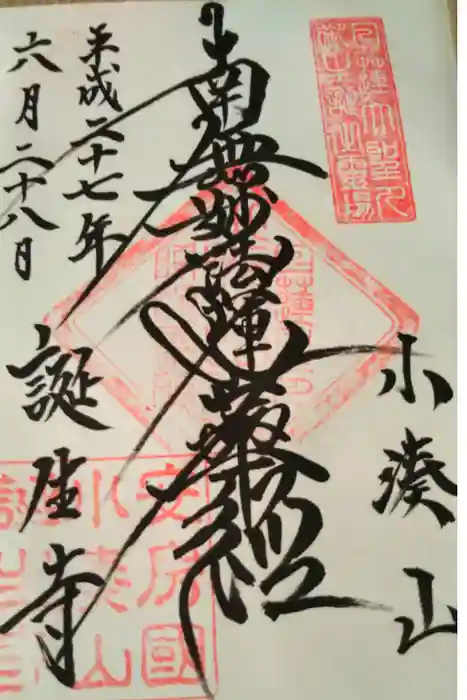 日蓮大聖人
御降誕霊場
小湊山
南無妙法蓮華経
平成二十七年
六月二十八日
誕生寺
安房國
小湊山
誕生寺